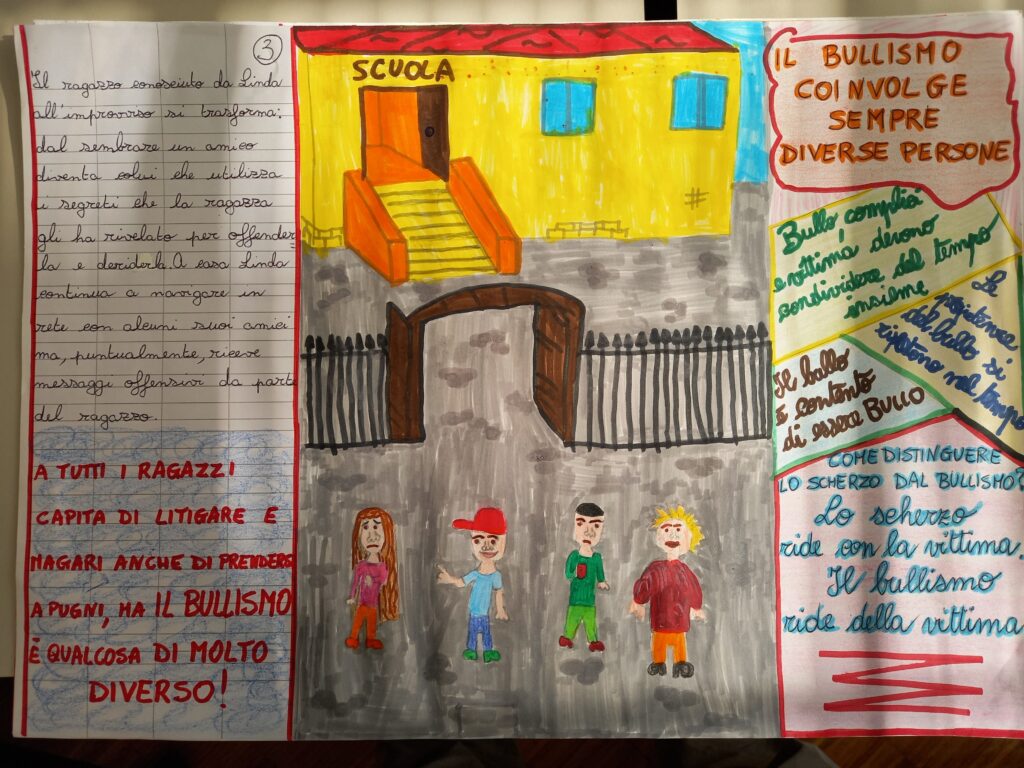 3
Il ragazzo conosciuto da Linda
all'improvviso si trasforma:
dal sembrare un amico
diventa colui che utilizza
i segreti che la ragazza
gli ha rivelato per offender
la e deriderla. A casa Linda
continua a navigare in
rete con alcuni suoi amici
ma, puntualmente, riceve
messaggi offensivi da parte
del ragazzo.
A TUTTI I RAGAZZI
CAPITA DI LITIGARE E
MAGARI ANCHE DI PRENDERSI
A PUGNI, MA IL BULLISMO
È QUALCOSA DI MOLTO
DIVERSO!
SCUOLA
IL BULLISMO
COINVOLGE
SEMPRE
DIVERSE PERSONE
Bullo, complici
e vittima devono
condividere del tempo
insieme
Le
prepotenze
del bullo si
ripetono nel tempo
Il bullo
È contento
di essere BULLO
COME DISTINGUERE
LO SCHERZO DAL BULLISMO?
Lo scherzo
ride con la vittima.
Il bullismo
ride della vittima